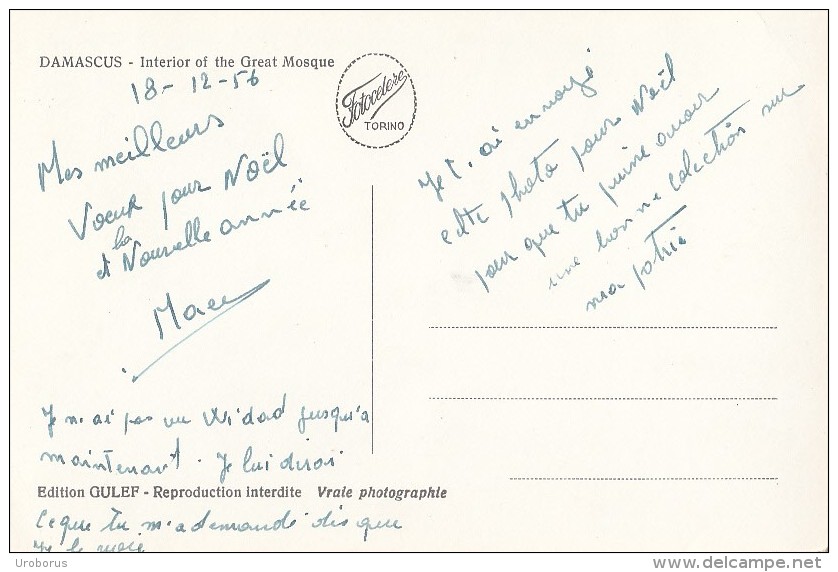 DAMASCUS - Interior of the Great Mosque
18-12-56
Mes meilleurs
Voeux pour Noël
et la Nouvelle année
Fotocelere
TORINO
Je t'ai envoyé
cette photo pour Noël
pour que tu puisse avoir
une bonne colection sur
ma patrie
Je n'ai pas vu Widad jusqu'a
maintenant. Je lui dirai
Edition GULEF - Reproduction interdite Vraie photographie
ce que tu m'a demandé dis que
je le
Uroborus
delcampe.net